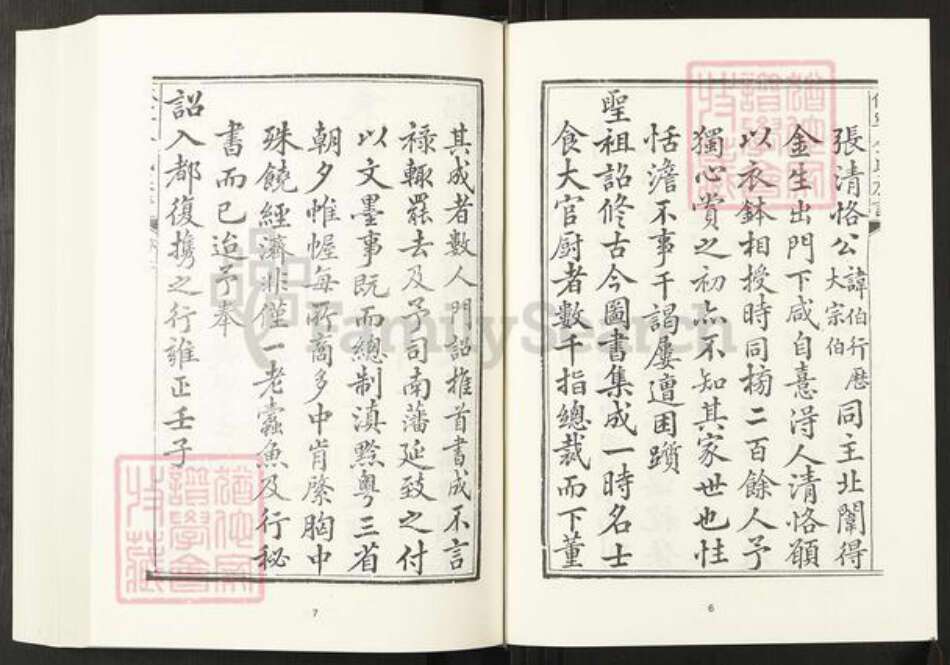 張清恪公諱伯行歷大宗伯同主北闈得
金生出門下咸自憙得人清恪願
以衣鉢相授時同榜二百餘人予
獨心賞之初亦不知其家世也性
恬澹不事干謁屢遭困躓
聖祖詔修古今圖書集成一時名士
食大官厨者數千指總裁而下董
6
其成者數人門詔推首書成不言
祿輒罷去及予司南藩延致之付
以文墨事既而總制滇黔粵三省
朝夕帷幄每所商多中肯綮胸中
殊饒經濟非僅一老蠹魚及行秘
書而已迨予奉
詔入都復攜之行雍正壬子
7
FamilySearch